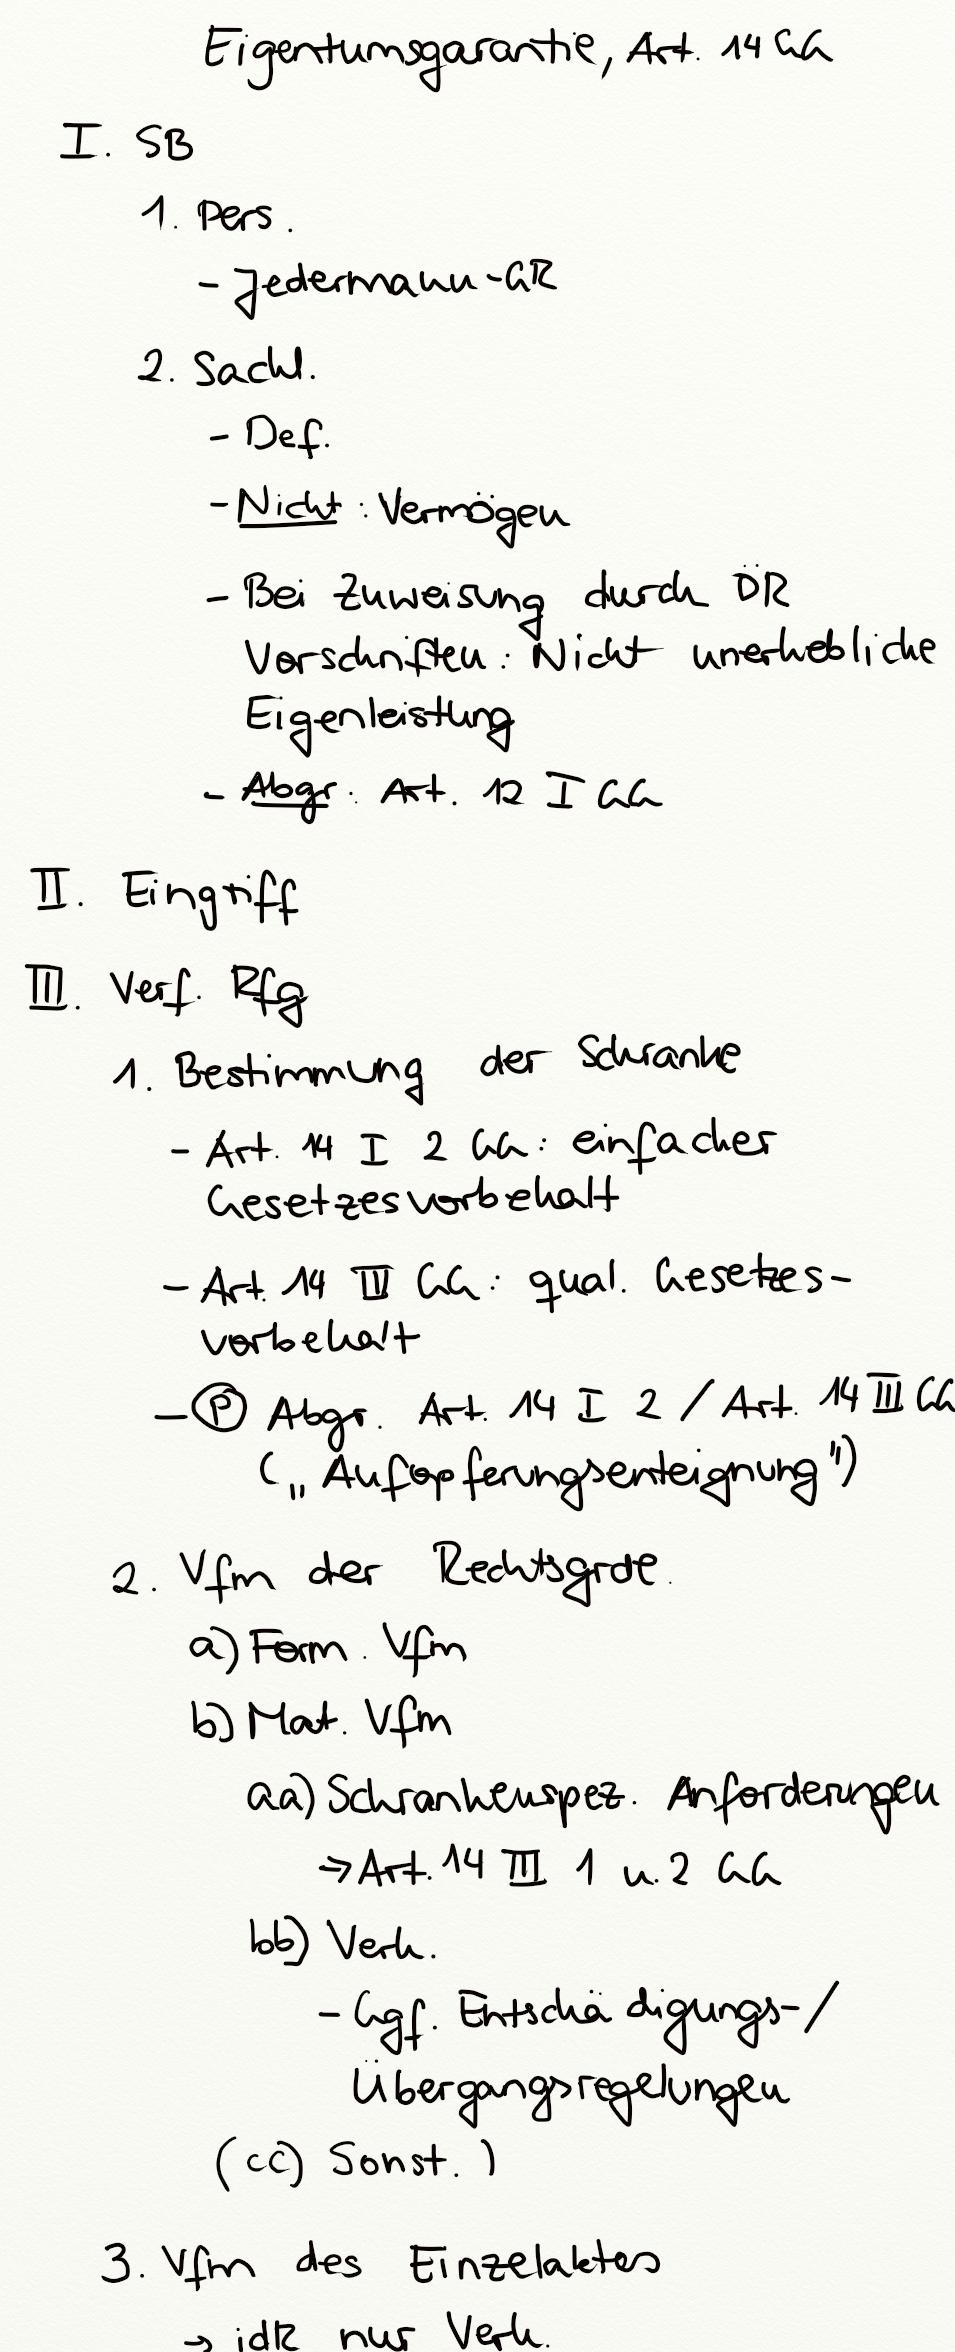 Eigentumsgarantie, Art. 14 GG
I. SB
1. Pers.
- Jedermann-GR
2. Sachl.
- Def.
- Nicht: Vermögen
- Bei Zuweisung durch ÖR
Vorschriften: Nicht unerhebliche
Eigenleistung
- Abgr: Art. 12 I GG
II. Eingriff
III. Verf. Rfg
1. Bestimmung der Schranke
- Art. 14 I 2 GG: einfacher
Gesetzesvorbehalt
- Art. 14 III GG: qual. Gesetzes-
vorbehalt
- Ⓟ Abgr. Art. 14 I 2 / Art. 14 III GG
(„Aufopferungsenteignung")
2. Vfm der Rechtsgrde.
a) Form. Vfm
b) Mat. Vfm
aa) Schrankenspez. Anforderungen
→ Art. 14 III 1 u. 2 GG
bb) Verh.
- Ggf. Entschädigungs-/
Übergangsregelungen
(cc) Sonst.)
3. Vfm des Einzelaktes
→ idR nur Verh.